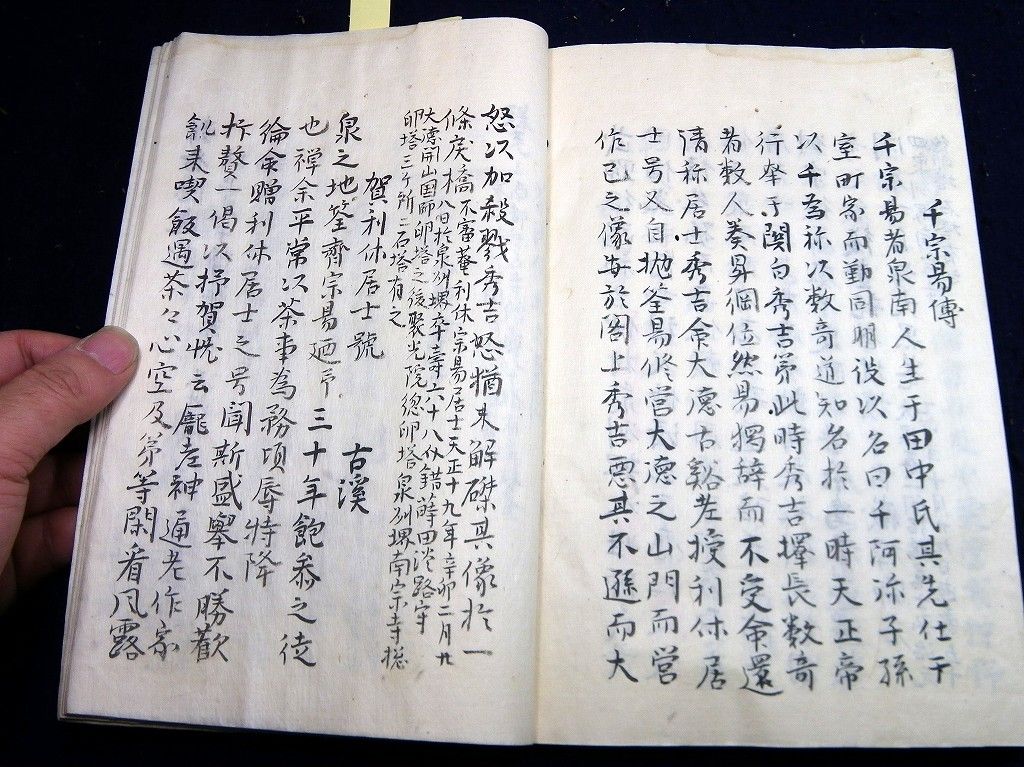 千宗易傳
千宗易者泉南人生于田中氏其先仕于
室町家而勤同朋役以名曰千阿弥子孫
以千為称以数奇道知名於一時天正帝
行幸于関白秀吉第此時秀吉擇長数奇
者数人奏昇綱位然易獨辞而不受命還
請称居士秀吉命大德古谿老授利休居
士号又自抛筌易修営大德之山門而営
作己之像安於閣上秀吉悪其不遜而大
怒以加殺戮秀吉怒猶未解磔其像於一
條戻橋不審菴利休宗易居士天正十九年辛卯二月廿
八日於泉刕堺卒壽六十八介錯蒔田淡路守
大德開山国師卵塔之後聚光院總卵塔泉刕堺南宗寺總
卵塔三ヶ所ニ石塔有之
賀利休居士號
古溪
泉之地筌齋宗易廼予三十年飽参之徒
也禅余平常以茶事為務頃辱特降
綸命贈利休居士之号聞斯盛擧不勝歓
抃贅一偈以抒賀忱云龐老神通老作家
飢来喫飯遇茶々心空及第等閑看風露